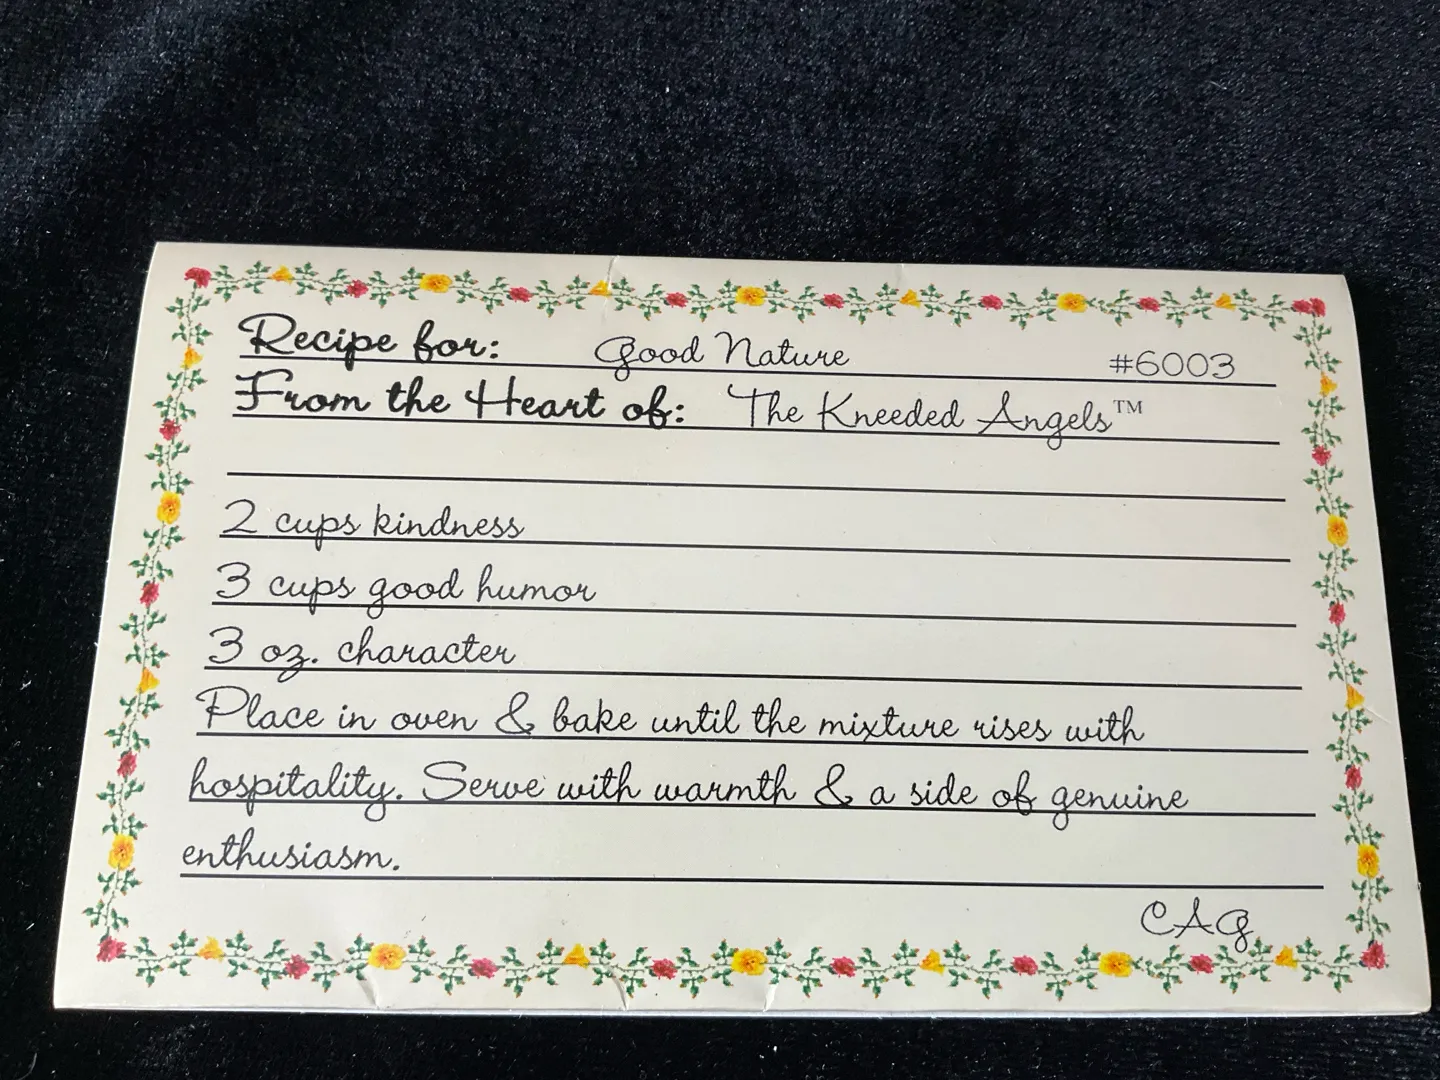 Recipe for: Good Nature #6003
From the Heart of: The Kneeded Angels™
2 cups kindness
3 cups good humor
3 oz. character
Place in oven & bake until the mixture rises with
hospitality. Serve with warmth & a side of genuine
enthusiasm.
CAG